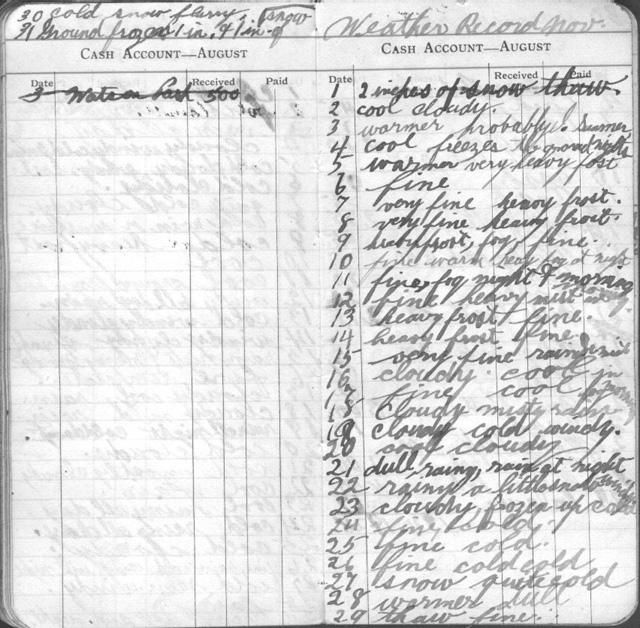 30 cold snow flurry
31 Ground frozen 1 in. & 1 in. of snow
CASH ACCOUNT—AUGUST
Date Received Paid
3 Watson Cash 500
Weather Record Nov.
CASH ACCOUNT—AUGUST
Date Received Paid
1 2 inches of snow thaw.
2 cool cloudy.
3 warmer probably. summer
4 cool freezes the ground nights
5 warmer very heavy fost
6 fine
7 very fine heavy frost.
8 very fine heavy frost.
9 heavy frost, fog, fine.
10 fine warm heavy fog at night
11 fine, fog night & morning
12 fine heavy mist
13 heavy frost fine.
14 heavy frost fine.
15 very fine rain
16 cloudy. cool
17 fine cool
18 Cloudy misty rain
19 cloudy cold windy.
20 cool cloudy
21 dull rainy, rain at night
22 rainy a little snow
23 cloudy, frozen up cold
24 fine cold.
25 fine cold.
26 fine cold cold
27 snow quite cold
28 warmer dull
29 thaw fine.